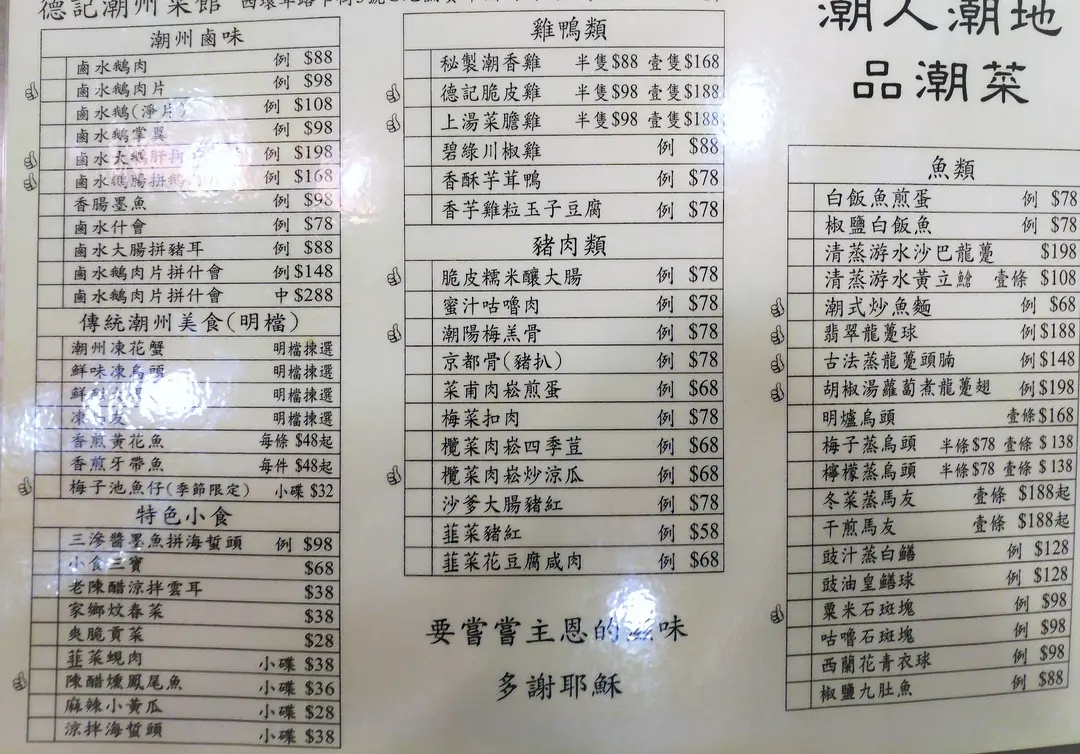 德記潮州菜館
潮州鹵味
鹵水鵝肉 例 $88
鹵水鵝肉片 例 $98
鹵水鵝(淨片) 例 $108
鹵水鵝掌翼 例 $98
鹵水大鵝肝拼 例 $198
鹵水鵝腸拼鵝 例 $168
香腸墨魚 例 $98
鹵水什會 例 $78
鹵水大腸拼豬耳 例 $88
鹵水鵝肉片拼什會 例 $148
鹵水鵝肉片拼什會 中 $288
傳統潮州美食(明檔)
潮州凍花蟹 明檔揀選
鮮味凍烏頭 明檔揀選
鮮 明檔揀選
凍 友 明檔揀選
香煎黃花魚 每條 $48起
香煎牙帶魚 每件 $48起
梅子池魚仔(季節限定) 小碟 $32
特色小食
三滲醬墨魚拼海蜇頭 例 $98
小食三寶 $68
老陳醋涼拌雲耳 $38
家鄉炆春菜 $38
爽脆貢菜 $28
韮菜蜆肉 小碟 $38
陳醋燻鳳尾魚 小碟 $36
麻辣小黃瓜 小碟 $28
涼拌海蜇頭 小碟 $38
雞鴨類
秘製潮香雞 半隻$88 壹隻$168
德記脆皮雞 半隻$98 壹隻$188
上湯菜膽雞 半隻$98 壹隻$188
碧綠川椒雞 例 $88
香酥芋茸鴨 例 $78
香芋雞粒玉子豆腐 例 $78
豬肉類
脆皮糯米釀大腸 例 $78
蜜汁咕嚕肉 例 $78
潮陽梅羔骨 例 $78
京都骨(豬扒) 例 $78
菜甫肉崧煎蛋 例 $68
梅菜扣肉 例 $78
欖菜肉崧四季荳 例 $68
欖菜肉崧炒涼瓜 例 $68
沙爹大腸豬紅 例 $78
韮菜豬紅 例 $58
韮菜花豆腐咸肉 例 $68
要嘗嘗主恩的滋味
多謝耶穌
潮人潮地
品潮菜
魚類
白飯魚煎蛋 例 $78
椒鹽白飯魚 例 $78
清蒸游水沙巴龍躉 $198
清蒸游水黃立鯧 壹條 $108
潮式炒魚麵 例 $68
翡翠龍躉球 例 $188
古法蒸龍躉頭腩 例 $148
胡椒湯蘿蔔煮龍躉翅 例 $198
明爐烏頭 壹條 $168
梅子蒸烏頭 半條 $78 壹條 $138
檸檬蒸烏頭 半條 $78 壹條 $138
冬菜蒸馬友 壹條 $188起
干煎馬友 壹條 $188起
豉汁蒸白鱔 例 $128
豉油皇鱔球 例 $128
粟米石斑塊 例 $98
咕嚕石斑塊 例 $98
西蘭花青衣球 例 $98
椒鹽九肚魚 例 $88